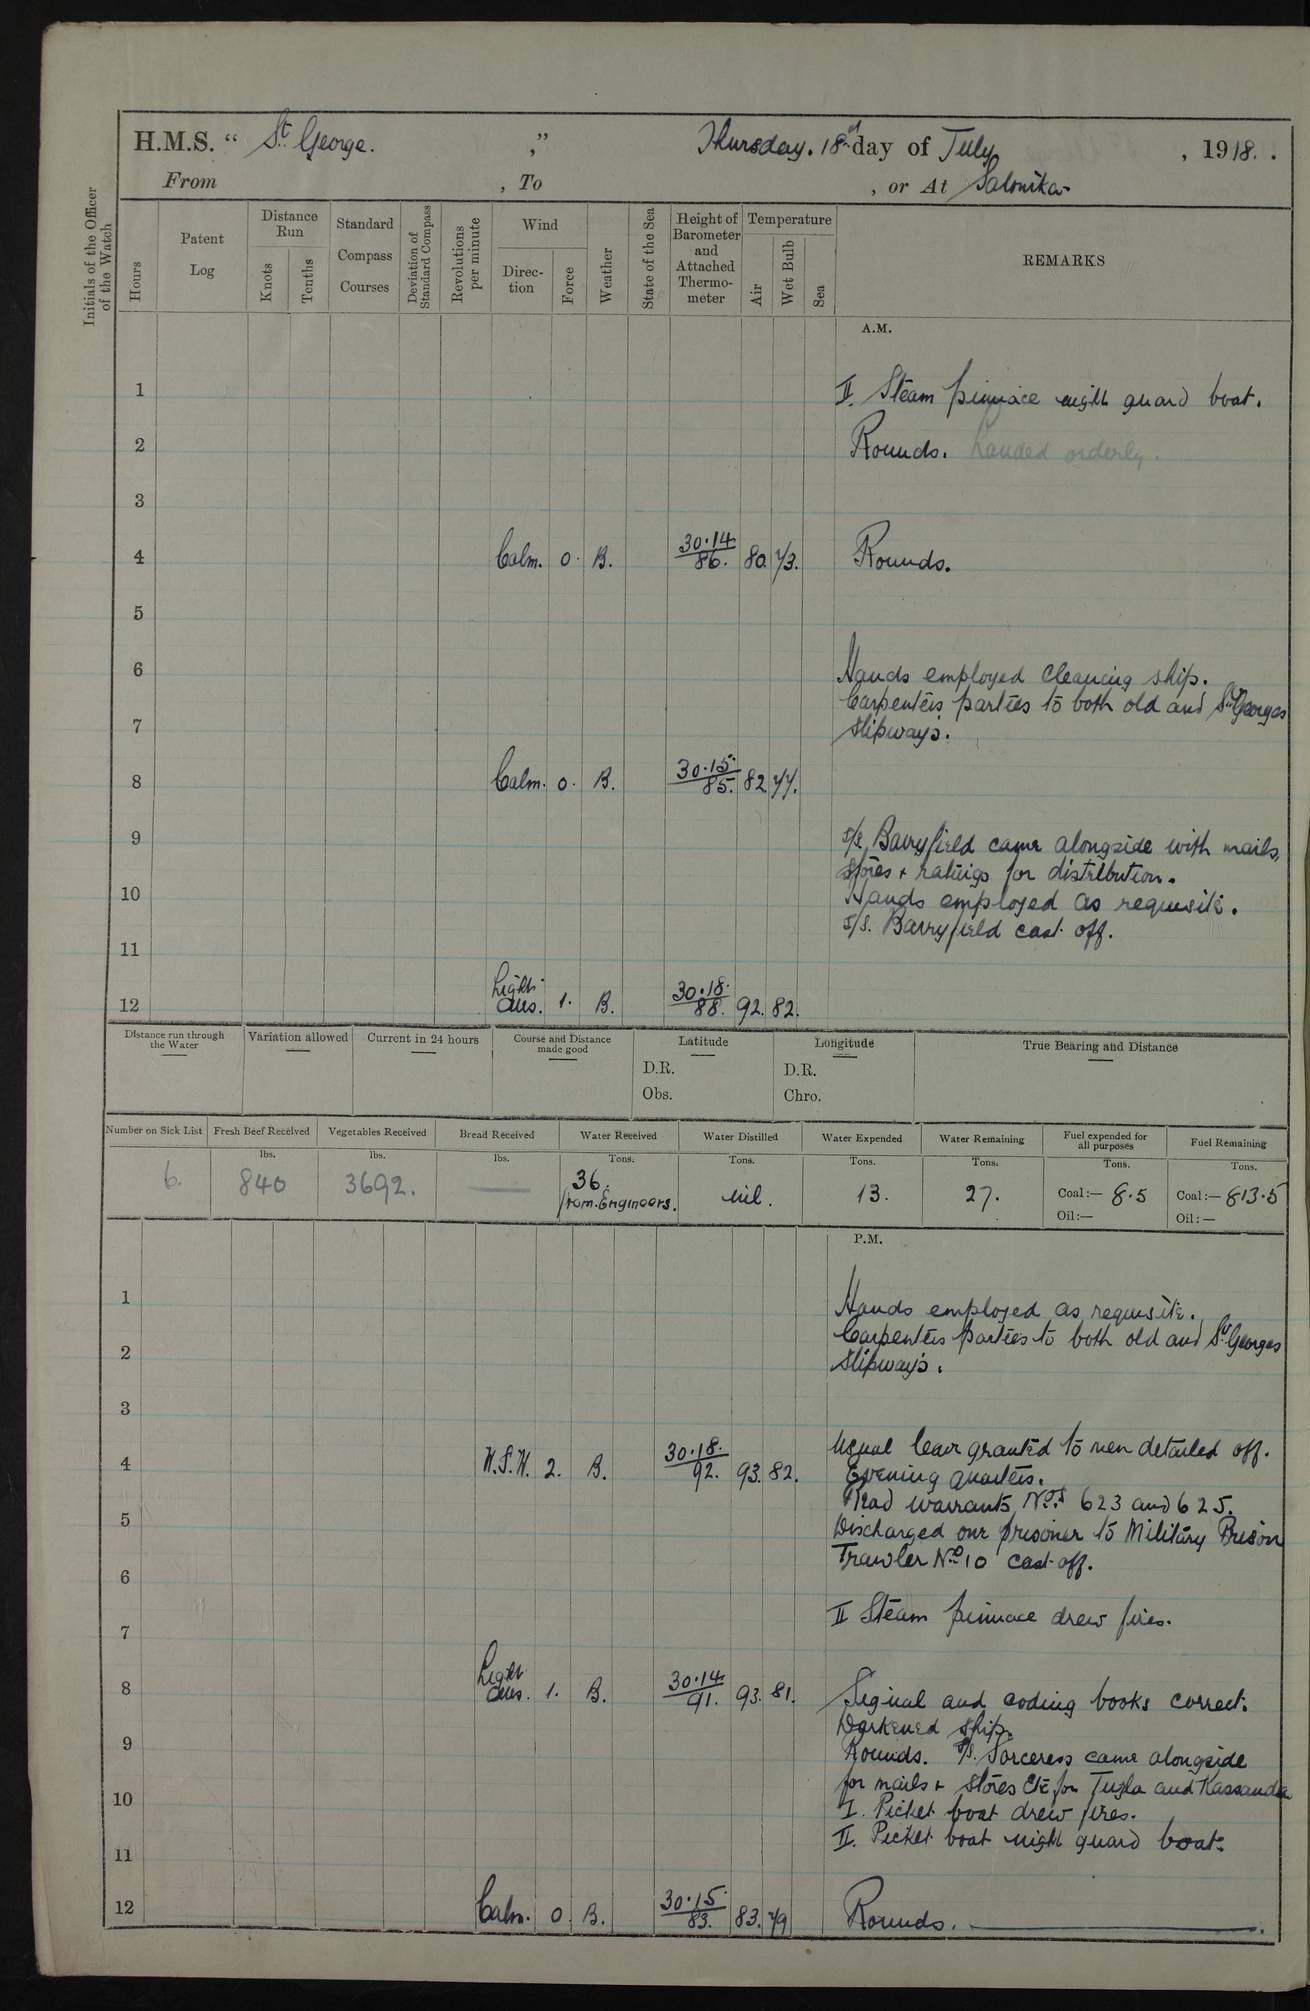 H.M.S. “ St George. ,” Thursday. 18th day of July , 1918.
From , To , or At Salonika
Initials of the Officer of the Watch
Hours
Patent Log
Distance Run
Knots
Tenths
Standard Compass Courses
Deviation of Standard Compass
Revolutions per minute
Wind
Direction
Force
Weather
State of the Sea
Height of Barometer and Attached Thermometer
Temperature
Air
Wet Bulb
Sea
REMARKS
A.M.
1 II. Steam pinnace night guard boat.
2 Rounds. Landed orderly.
3
4 Calm. 0. B. 30.14 86. 80. 73. Rounds.
5
6 Hands employed cleaning ship.
Carpenters parties to both old and St Georges
7 slipways.
8 Calm. 0. B. 30.15. 85. 82. 77.
9 s/s. Barryfield came alongside with mails,
stores + ratings for distribution.
10 Hands employed as requisite.
s/s. Barryfield cast off.
11
12 Light airs. 1. B. 30.18. 88. 92. 82.
Distance run through the Water
Variation allowed
Current in 24 hours
Course and Distance made good
Latitude
D.R.
Obs.
Longitude
D.R.
Chro.
True Bearing and Distance
Number on Sick List Fresh Beef Received Vegetables Received Bread Received Water Received Water Distilled Water Expended Water Remaining Fuel expended for all purposes Fuel Remaining
lbs. lbs. lbs. Tons. Tons. Tons. Tons. Tons. Tons.
6. 840 3692. — 36. from Engineers. nil. 13. 27. Coal:— 8.5 Coal:— 813.5
Oil:— Oil:—
P.M.
1 Hands employed as requisite.
Carpenters parties to both old and St Georges
2 slipways.
3
4 W.S.W. 2. B. 30.18. 92. 93. 82. Usual leave granted to men detailed off.
Evening quarters.
Read warrants Nos 623 and 625.
5 Discharged one prisoner to Military Prison
Trawler No 10 cast off.
6
II Steam pinnace drew fires.
7
8 Light airs. 1. B. 30.14. 91. 93. 81. Signal and coding books correct.
Darkened ship.
9 Rounds. s/s. Sorceress came alongside
for mails + stores etc for Tuzla and Kassandra
10 I. Picket boat drew fires.
II. Picket boat night guard boat.
11
12 Calm. 0. B. 30.15. 83. 83. 79 Rounds.